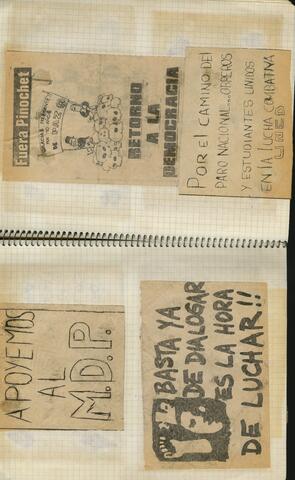 Fuera Pinochet
RETORNO
A LA
DEMOCRACIA
POR EL CAMINO DEL
PARO NACIONAL... OBREROS
Y ESTUDIANTES UNIDOS
EN LA LUCHA COMBATIVA
UNED
APOYEMOS
AL
M.D.P.
BASTA YA
DE DIALOGAR
ES LA HORA
DE LUCHAR!!